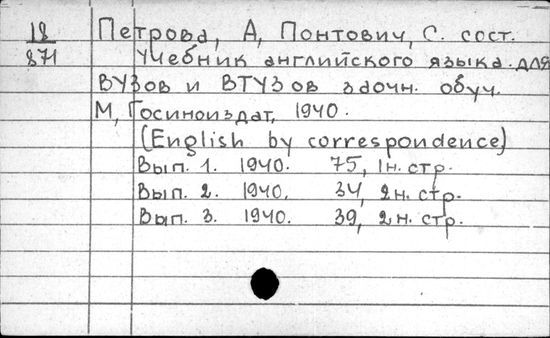 18
871
Петрова, А, Понтович, С. сост.
Учебник английского языка для
ВУЗов и ВТУЗов заочн. обуч.
М, Госиноиздат, 1940.
(English by correspondence)
Вып. 1. 1940. 75, 1н. стр.
Вып. 2. 1940. 34, 2н. стр.
Вып. 3. 1940. 39, 2н. стр.